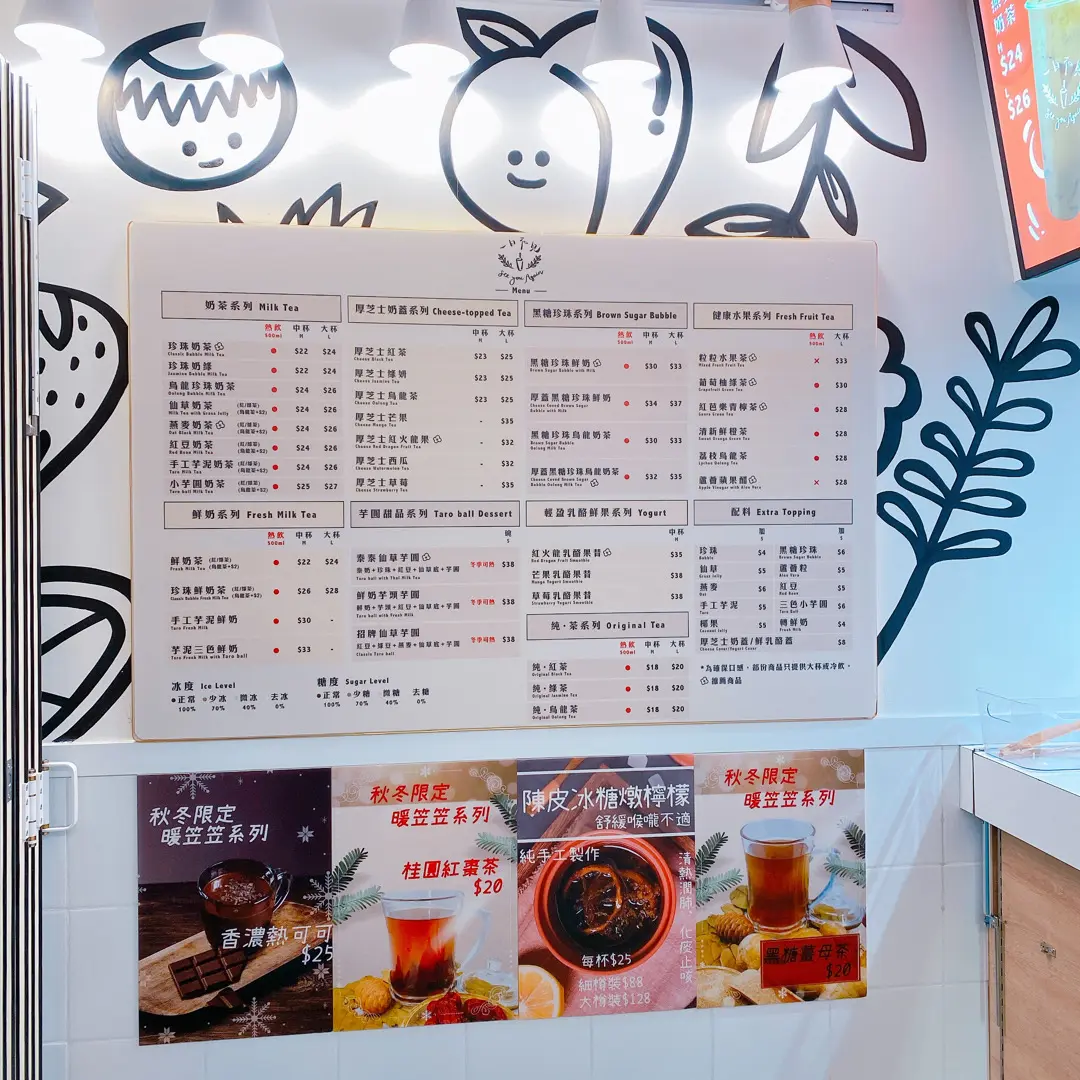 奶茶
M
$24
L
$26
一日不見
See you Again
Menu
奶茶系列 Milk Tea
熱飲 中杯 大杯
500ml M L
珍珠奶茶 $22 $24
Classic Bubble Milk Tea
珍珠奶綠 $22 $24
Jasmine Bubble Milk Tea
烏龍珍珠奶茶 $24 $26
Oolong Bubble Milk Tea
仙草奶茶 (紅/綠茶) (烏龍茶+$2) $24 $26
Milk Tea with Grass Jelly
燕麥奶茶 (紅/綠茶) (烏龍茶+$2) $24 $26
Oat Black Milk Tea
紅豆奶茶 (紅/綠茶) (烏龍茶+$2) $24 $26
Red Bean Milk Tea
手工芋泥奶茶 (紅/綠茶) (烏龍茶+$2) $24 $26
Taro Milk Tea
小芋圓奶茶 (紅/綠茶) (烏龍茶+$2) $25 $27
Taro ball Milk Tea
厚芝士奶蓋系列 Cheese-topped Tea
中杯 大杯
M L
厚芝士紅茶 $23 $25
Cheese Black Tea
厚芝士綠妍 $23 $25
Cheese Jasmine Tea
厚芝士烏龍茶 $23 $25
Cheese Oolong Tea
厚芝士芒果 - $35
Cheese Mango Tea
厚芝士紅火龍果 - $32
Cheese Red Dragon Fruit Tea
厚芝士西瓜 - $32
Cheese Watermelon Tea
厚芝士草莓 - $35
Cheese Strawberry Tea
黑糖珍珠系列 Brown Sugar Bubble
熱飲 中杯 大杯
500ml M L
黑糖珍珠鮮奶 $30 $33
Brown Sugar Bubble with Milk
厚蓋黑糖珍珠鮮奶 $34 $37
Cheese Coved Brown Sugar
Bubble with Milk
黑糖珍珠烏龍奶茶 $30 $33
Brown Sugar Bubble
Oolong Milk Tea
厚蓋黑糖珍珠烏龍奶茶 $32 $35
Cheese Coved Brown Sugar
Bubble Oolong Milk Tea
健康水果系列 Fresh Fruit Tea
熱飲 大杯
500ml L
粒粒水果茶 × $33
Mixed Fresh Fruit Tea
葡萄柚綠茶 $30
Grapefruit Green Tea
紅芭樂青檸茶 $28
Guava Green Tea
清新鮮橙茶 $28
Sweet Orange Green Tea
荔枝烏龍茶 $28
Lychee Oolong Tea
蘆薈蘋果醋 × $28
Apple Vinegar with Aloe Vera
鮮奶系列 Fresh Milk Tea
熱飲 中杯 大杯
500ml M L
鮮奶茶 (紅/綠茶) (烏龍茶+$2) $22 $24
Fresh Milk Tea
珍珠鮮奶茶 (紅/綠茶) (烏龍茶+$2) $26 $28
Classic Bubble Fresh Milk Tea
手工芋泥鮮奶 $30 -
Taro Fresh Milk
芋泥三色鮮奶 $33 -
Taro Fresh Milk with Taro ball
芋圓甜品系列 Taro ball Dessert
碗
S
泰泰仙草芋圓 冬季可熱 $38
泰奶+珍珠+紅豆+仙草底+芋圓
Taro ball with Thai Milk Tea
鮮奶芋頭芋圓 冬季可熱 $38
鮮奶+芋頭+紅豆+仙草底+芋圓
Taro ball with Fresh Milk
招牌仙草芋圓 冬季可熱 $38
紅豆+綠豆+燕麥+仙草底+芋圓
Classic Taro ball
輕盈乳酪鮮果系列 Yogurt
中杯
M
紅火龍乳酪果昔 $35
Red Dragon Fruit Smoothie
芒果乳酪果昔 $38
Mango Yogurt Smoothie
草莓乳酪果昔 $38
Strawberry Yogurt Smoothie
純·茶系列 Original Tea
熱飲 中杯 大杯
500ml M L
純·紅茶 $18 $20
Original Black Tea
純·綠茶 $18 $20
Original Jasmine Tea
純·烏龍茶 $18 $20
Original Oolong Tea
配料 Extra Topping
加 加
S S
珍珠 $4 黑糖珍珠 $6
Bubble Brown Sugar Bubble
仙草 $5 蘆薈粒 $5
Grass Jelly Aloe Vera
燕麥 $5 紅豆 $5
Oat Red Bean
手工芋泥 $5 三色小芋圓 $6
Taro Taro Ball
椰果 $5 轉鮮奶 $4
Coconut Jelly Fresh Milk
厚芝士奶蓋/鮮乳酪蓋 $8
Cheese Cover/Yogurt Cover
*為確保口感,部份商品只提供大杯或冷飲。
推薦商品
冰度 Ice Level
正常 少冰 微冰 去冰
100% 70% 40% 0%
糖度 Sugar Level
正常 少糖 微糖 去糖
100% 70% 40% 0%
秋冬限定
暖笠笠系列
香濃熱可可
$25
秋冬限定
暖笠笠系列
桂圓紅棗茶
$20
陳皮冰糖燉檸檬
舒緩喉嚨不適
純手工製作
清熱潤肺,化痰止咳
每杯$25
細樽裝$88
大樽裝$128
秋冬限定
暖笠笠系列
黑糖薑母茶
$20